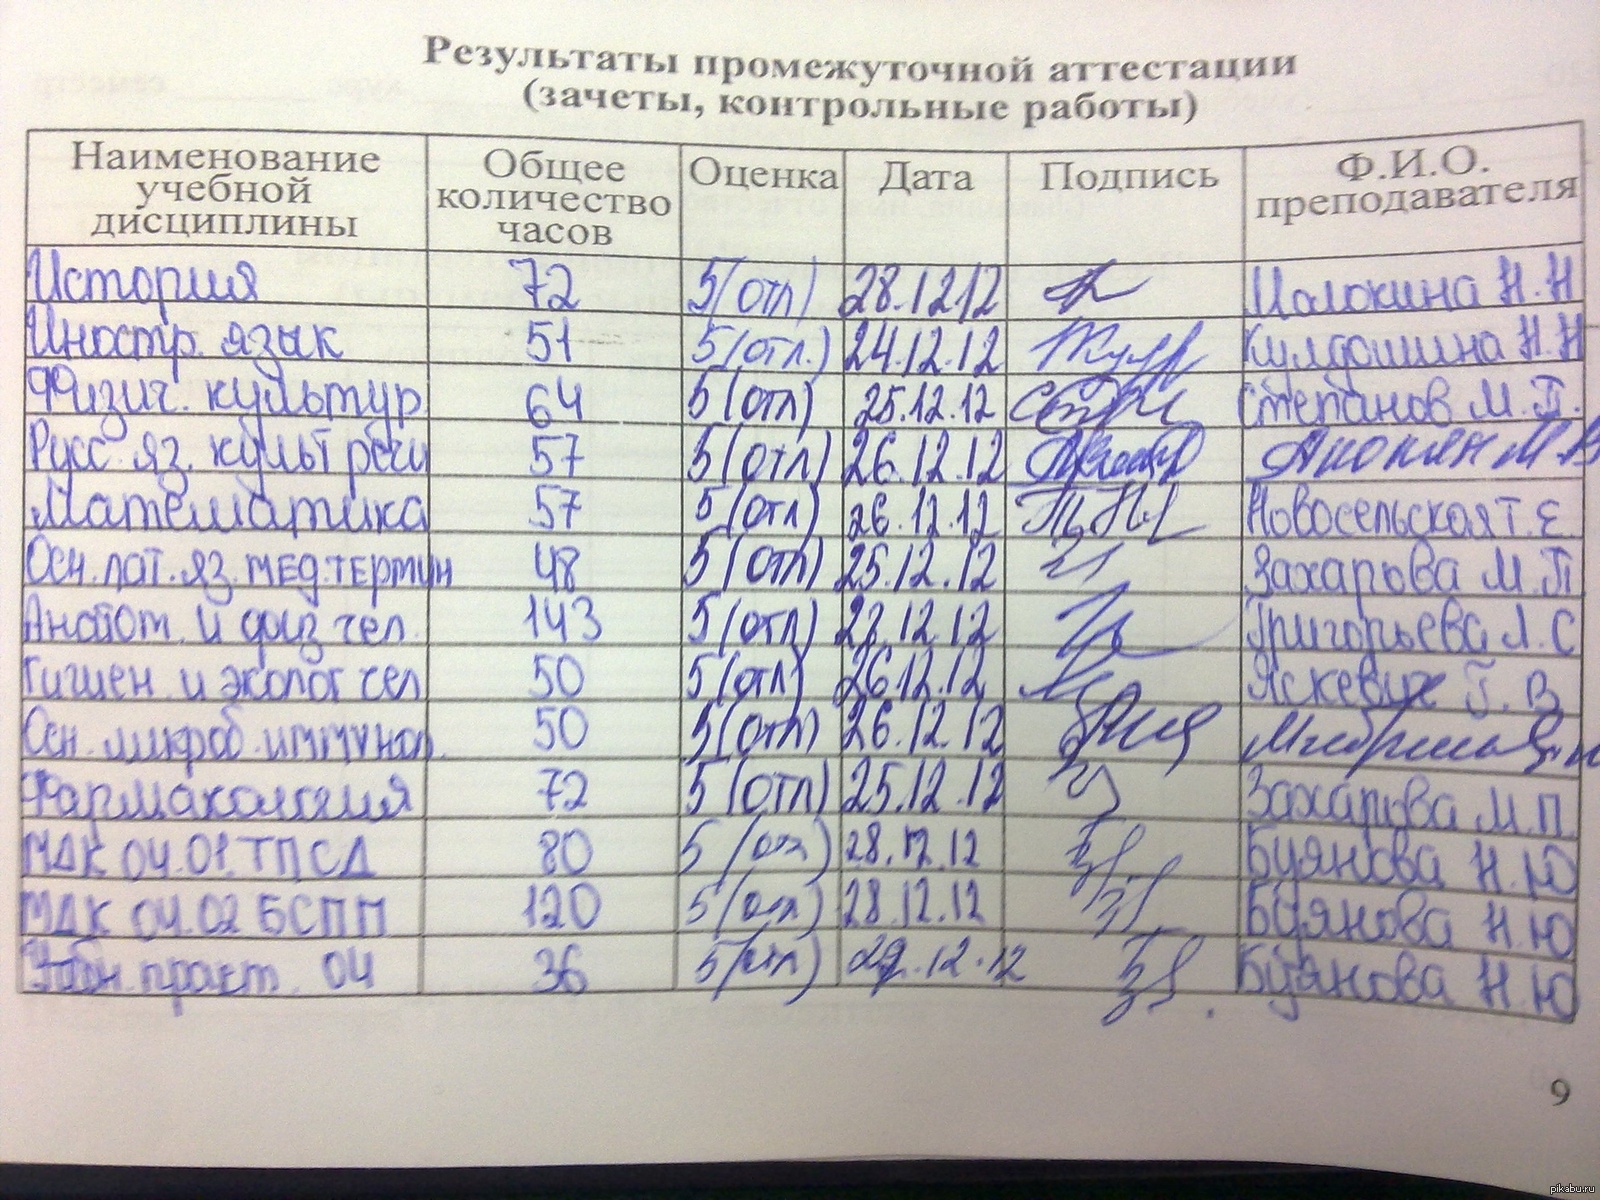 Результаты промежуточной аттестации
(зачеты, контрольные работы)
Наименование учебной дисциплины Общее количество часов Оценка Дата Подпись Ф.И.О. преподавателя
История 72 5(отл) 28.12.12 Молокина Н.Н
Иностр. язык 51 5(отл.) 24.12.12 Кулдошина Н.Н
Физич. культур 64 5(отл) 25.12.12 Степанов М.П.
Русс. яз. культ речи 57 5(отл) 26.12.12 Акопян М.В
Математика 57 5(отл) 26.12.12 Новосельская Т.Е.
Осн. лат. яз. мед. термин 48 5(отл) 25.12.12 Захарова М.П
Анатом. и физ чел. 143 5(отл) 12.12 Григорьева Л.С
Гигиен. и эколог чел 50 5(отл) 26.12.12 Яскевич Г.В
Осн. микроб. иммунол. 50 5(отл) 26.12.12
Фармакология 72 5(отл) 25.12.12 Захарова М.П.
МДК 04.01. ТПСД 80 5(отл) 28.12.12 Буянова Н.Ю
МДК 04.02 БСПП 120 5(отл) 28.12.12 Буянова Н.Ю
практ. 04 36 5(отл) 12.12 Буянова Н.Ю
9
pikabu.ru